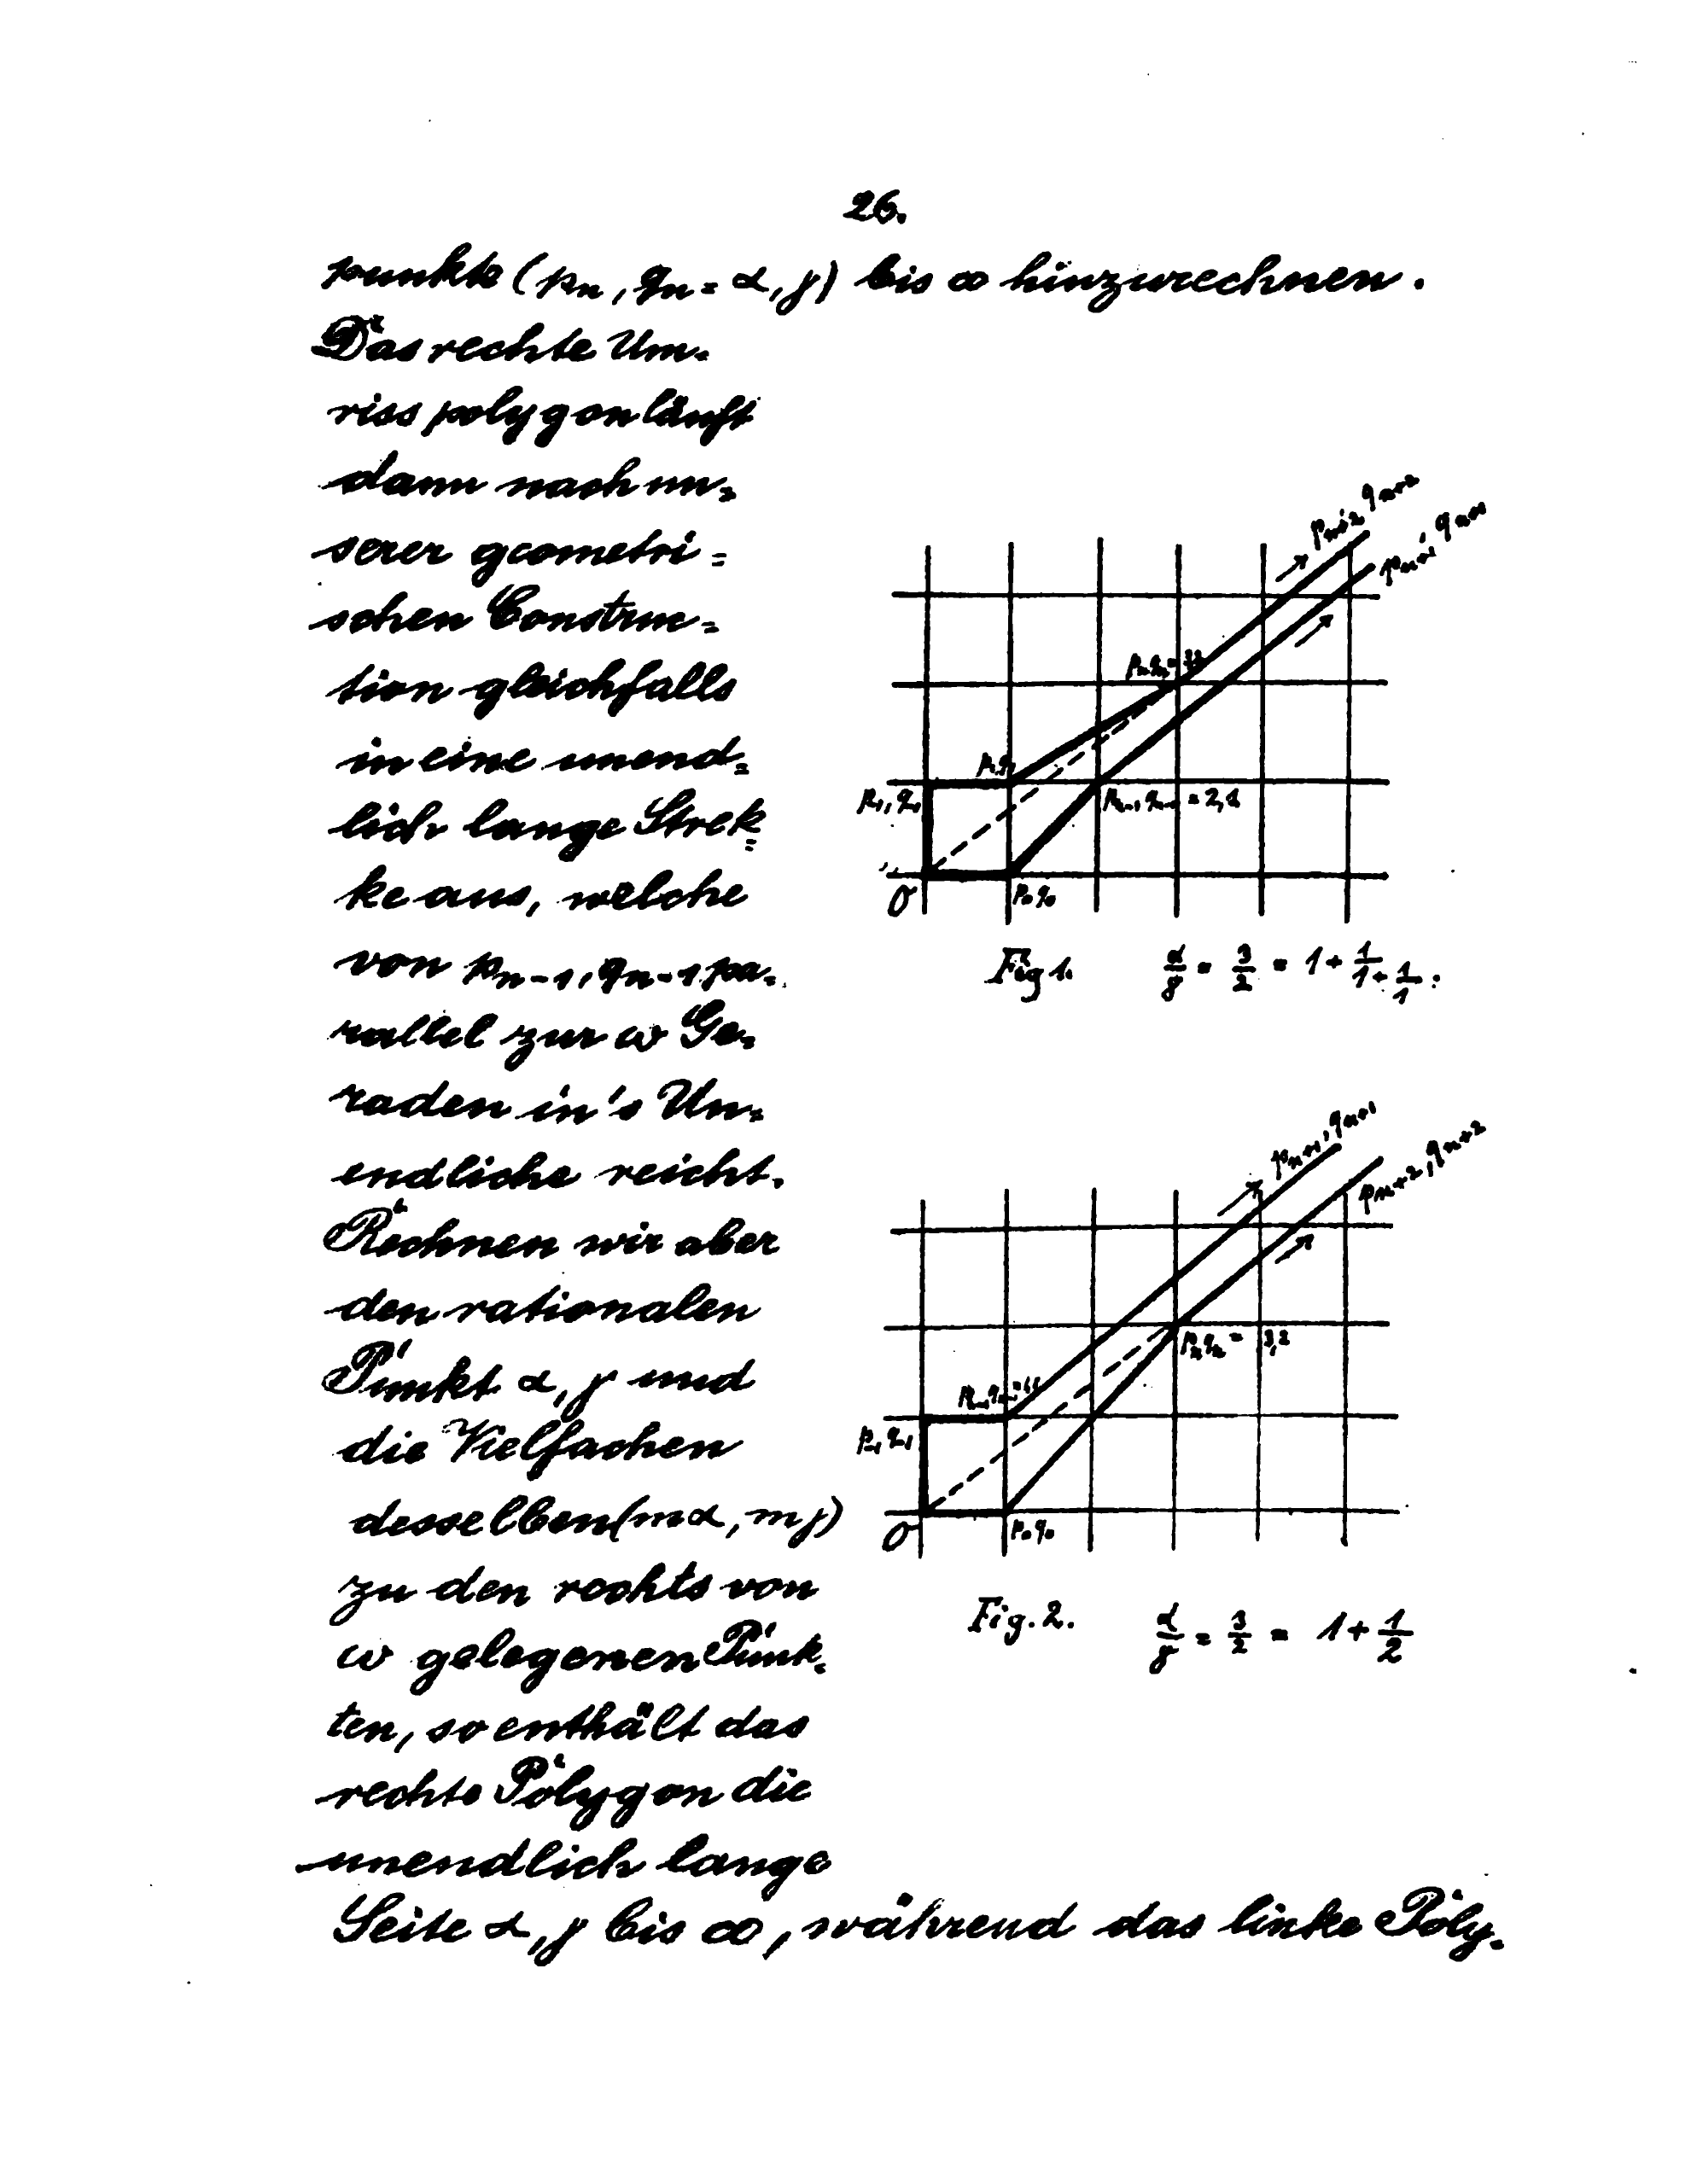 26.
punkte (pₙ, qₙ = α, γ) bis ∞ hinzurechnen.
Das rechte Um-
risspolygon läuft
dann nach un-
serer geometri=
schen Construc=
tion gleichfalls
in eine unend=
lich lange Strek=
ke aus, welche
von pₙ₋₁, qₙ₋₁ pa-
rallel zur ω Ge-
raden in's Un=
endliche reicht.
Rechnen wir aber
den rationalen
Punkt α, γ und
die Vielfachen
desselben (mα, mγ)
zu den rechts von
ω gelegenen Punk=
ten, so enthält das
rechte Polygon die
unendlich lange
Seite α, γ bis ∞, während das linke Poly-
pₙ₊₂, qₙ₊₂
pₙ₊₁, qₙ₊₁
pₙ, qₙ = 3,2
p₁ q₁
p₋₁, q₋₁
pₙ₋₁, qₙ₋₁ = 2,1
O
p₀ q₀
Fig 1. α/γ = 3/2 = 1 + 1/1 + 1/1.
pₙ₊₁, qₙ₊₁
pₙ₊₂, qₙ₊₂
pₙ qₙ = 3,2
pₙ₋₁ qₙ₋₁ = 1,1
p₋₁ q₋₁
O
p₀ q₀
Fig. 2. α/γ = 3/2 = 1 + 1/2